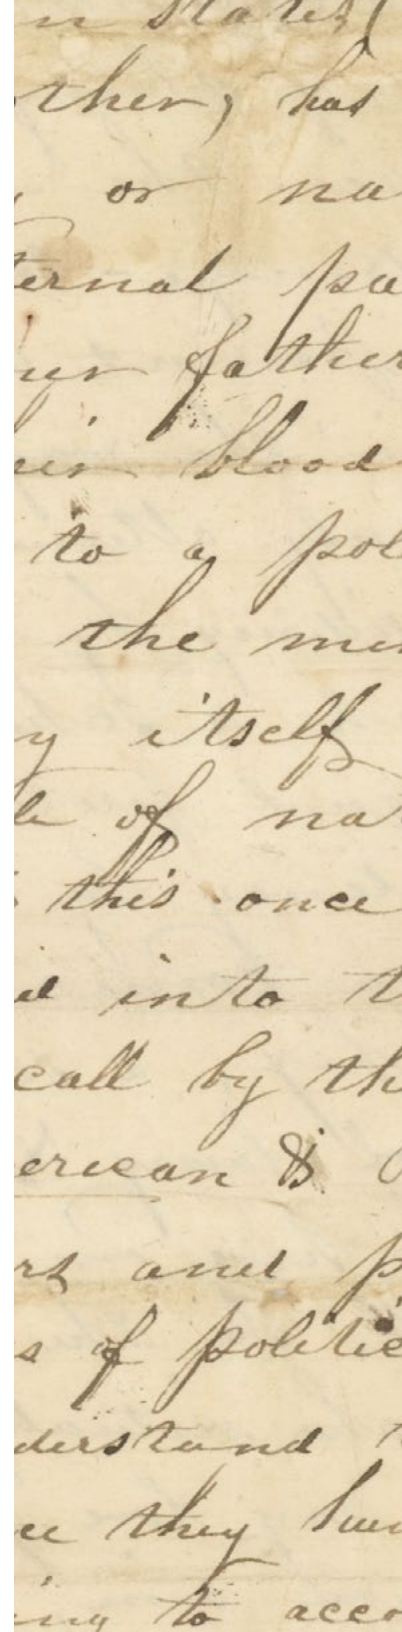 n States (
other, has
or na
ternal pa
ur father
eir blood
to a pol
the mo
y itself
le of na
this once
d into t
call by th
erican &
rs and p
s of politic
derstand
ce they hav
ing to acco